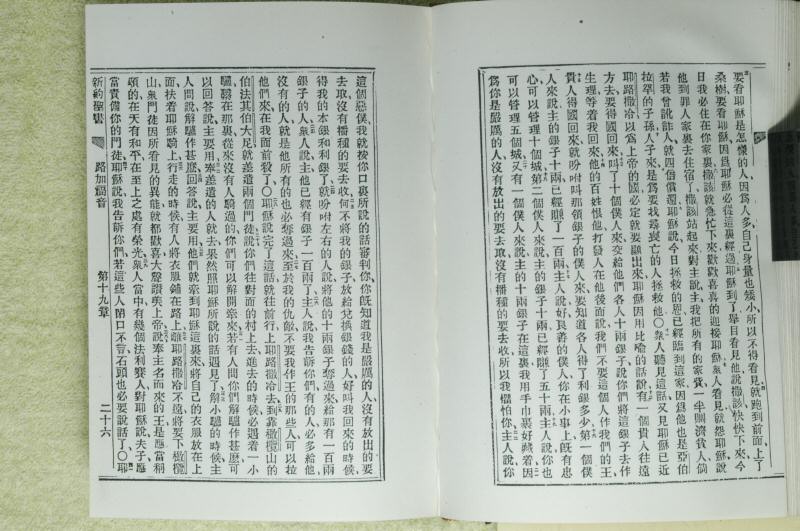 要看耶穌是怎樣的人因爲人多自己身量也矮小所以不得看見就跑到前面上了
桑樹要看耶穌因爲耶穌必從這裏經過耶穌到了舉目看見他說撒該快快下來今
日我必住在你家裏撒該就急忙下來歡歡喜喜的迎接耶穌衆人看見就怨耶穌說
他到罪人家裏去住宿了撒該站起來對主說主我把所有的家貲一半賙濟貧人倘
若我曾訛詐人就四倍償還耶穌說今日拯救的恩已經臨到這家因爲他也是亞伯
拉罕的子孫人子來是爲要找尋喪亡的人拯救他〇衆人聽見這話又見耶穌已近
耶路撒冷以爲上帝的國必定就要顯出來耶穌因用比喻的話說有一個貴人往遠
方去要得國回來就叫了十個僕人來交給他們各人十兩銀子說你們將這銀子去作
生理等着我回來他的百姓恨他打發人在他後面說我們不要這個人作我們的王
貴人得國回來就吩咐叫那領銀子的僕人來要知道各人得了利銀多少第一個僕
人來說主的銀子十兩已經賺了一百兩主人說好良善的僕人你在小事上旣有忠
心可以管理十個城第二個僕人來說主的銀子十兩已經賺了五十兩主人說你也
可以管理五個城又有一個僕人來說主的銀子十兩在這裏我用手巾裹好藏着因
爲你是嚴厲的人沒有放出的要去取沒有播種的要去收所以我懼怕你主人說你
這個惡僕我就按你口裏所說的話審判你你旣知道我是嚴厲的人沒有放出的要
去取沒有播種的要去收何不將我的銀子放給兌換銀錢的人好叫我回來的時候
得我的本銀和利銀了就吩咐左右的人說將他的十兩銀子奪過來給那有一百兩
銀子的人衆人說主他已經有銀子一百兩了主人說我告訴你們有的人必多給他
沒有的人就是他所有的也必奪過來至於我的仇敵不要我作王的那些人可以拉
他們來在我面前殺了〇耶穌說完了這話就往前行上耶路撒冷去到靠橄欖山的
伯法其伯大尼就差遣兩個門徒說你們往對面的村上去進去的時候必遇着一小
驢繫在那裏從來沒有人騎過的你們可以解開牽來若有人問你們解驢作甚麼可
以回答說主要用奉差遣的人就去果然照耶穌所說的話遇見了解小驢的時候主
人問說解驢作甚麼回答說主要用他們就牽到耶穌這裏來將自己的衣服放在上
面扶着耶穌騎上行走的時候有人將衣服鋪在路上離耶路撒冷不遠將要下橄欖
山衆門徒因所看見的異能就都歡喜大聲讚美上帝說奉主名而來的王是應當稱
頌的在天有和平在至上之處有榮光衆人當中有幾個法利賽人對耶穌說夫子應
當責備你的門徒耶穌說我告訴你們若這些人閉口不言石頭也必要說話了〇耶
新約聖書 路加福音 第十九章 二十六